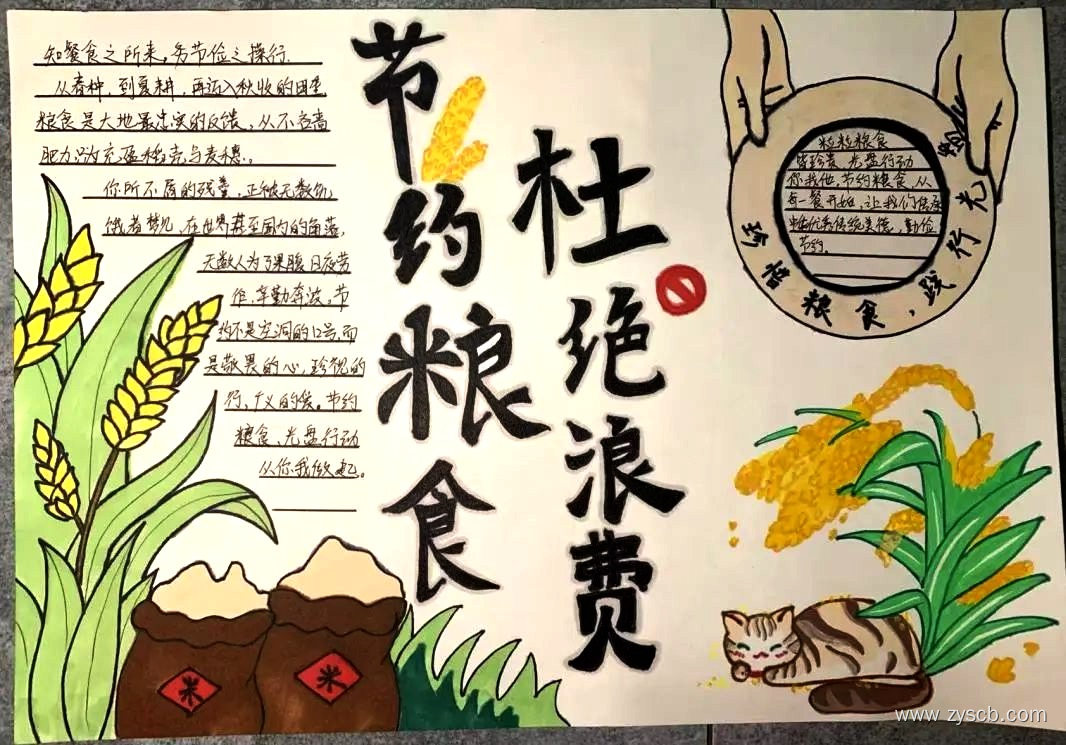 知餐食之所来,务节俭之操行.
从春种,到夏耕,再迈入秋收的田垄
粮食是大地最忠实的反馈,从不吝啬
肥力只为充盈稻壳与麦穗.。
你所不屑的残羹,正被无数饥
饿者梦见,在世界甚至国内的角落,
无数人为了果腹日夜劳
作,辛勤奔波,节
约不是空洞的口号,而
是敬畏的心,珍视的
行,广义的爱。节约
粮食、光盘行动
从你我做起。
节约粮食
杜绝浪费
粒粒粮食
皆珍贵,光盘行动
你我他,节约粮食,从
每一餐开始,让我们
传统美德,勤俭
节约.
珍惜粮食,践行光
米
米
www.zyscb.com